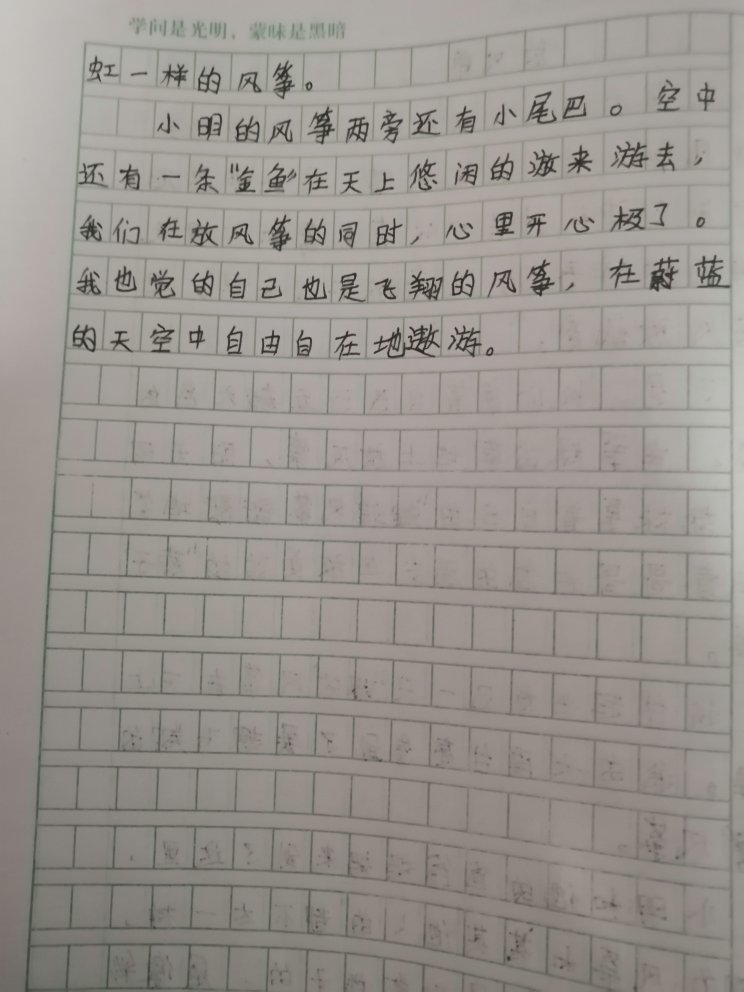 学问是光明，蒙昧是黑暗
虹一样的风筝。
小明的风筝两旁还有小尾巴。空中
还有一条“金鱼”在天上悠闲的游来游去，
我们在放风筝的同时，心里开心极了。
我也觉的自己也是飞翔的风筝，在蔚蓝
的天空中自由自在地遨游。